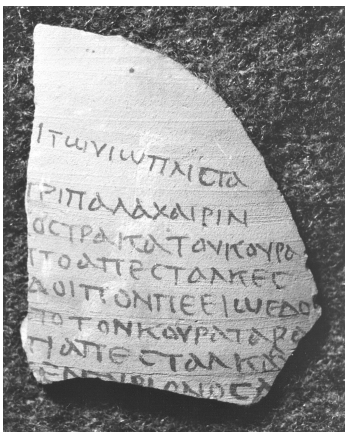 ΙΤωΝΙωΠΛΙϹΤΑ
ΤΡΙΠΑΛΑΧΑΙΡΙΝ
ΟϹΤΡΑΚΑΤΟΥΚΟΥΡΑ
ΤΟΑΠΕϹΤΑΛΚΕϹ
ΛΟΙΠΟΝΠΕΕΙωΕΔΟ
ΤΟΤΟΝΚΟΥΡΑΤΑΡΑ
ΠΑΠΕϹΤΑΛΚΑ
ΕΝΤΥΡΙΟΝΟϹΑ